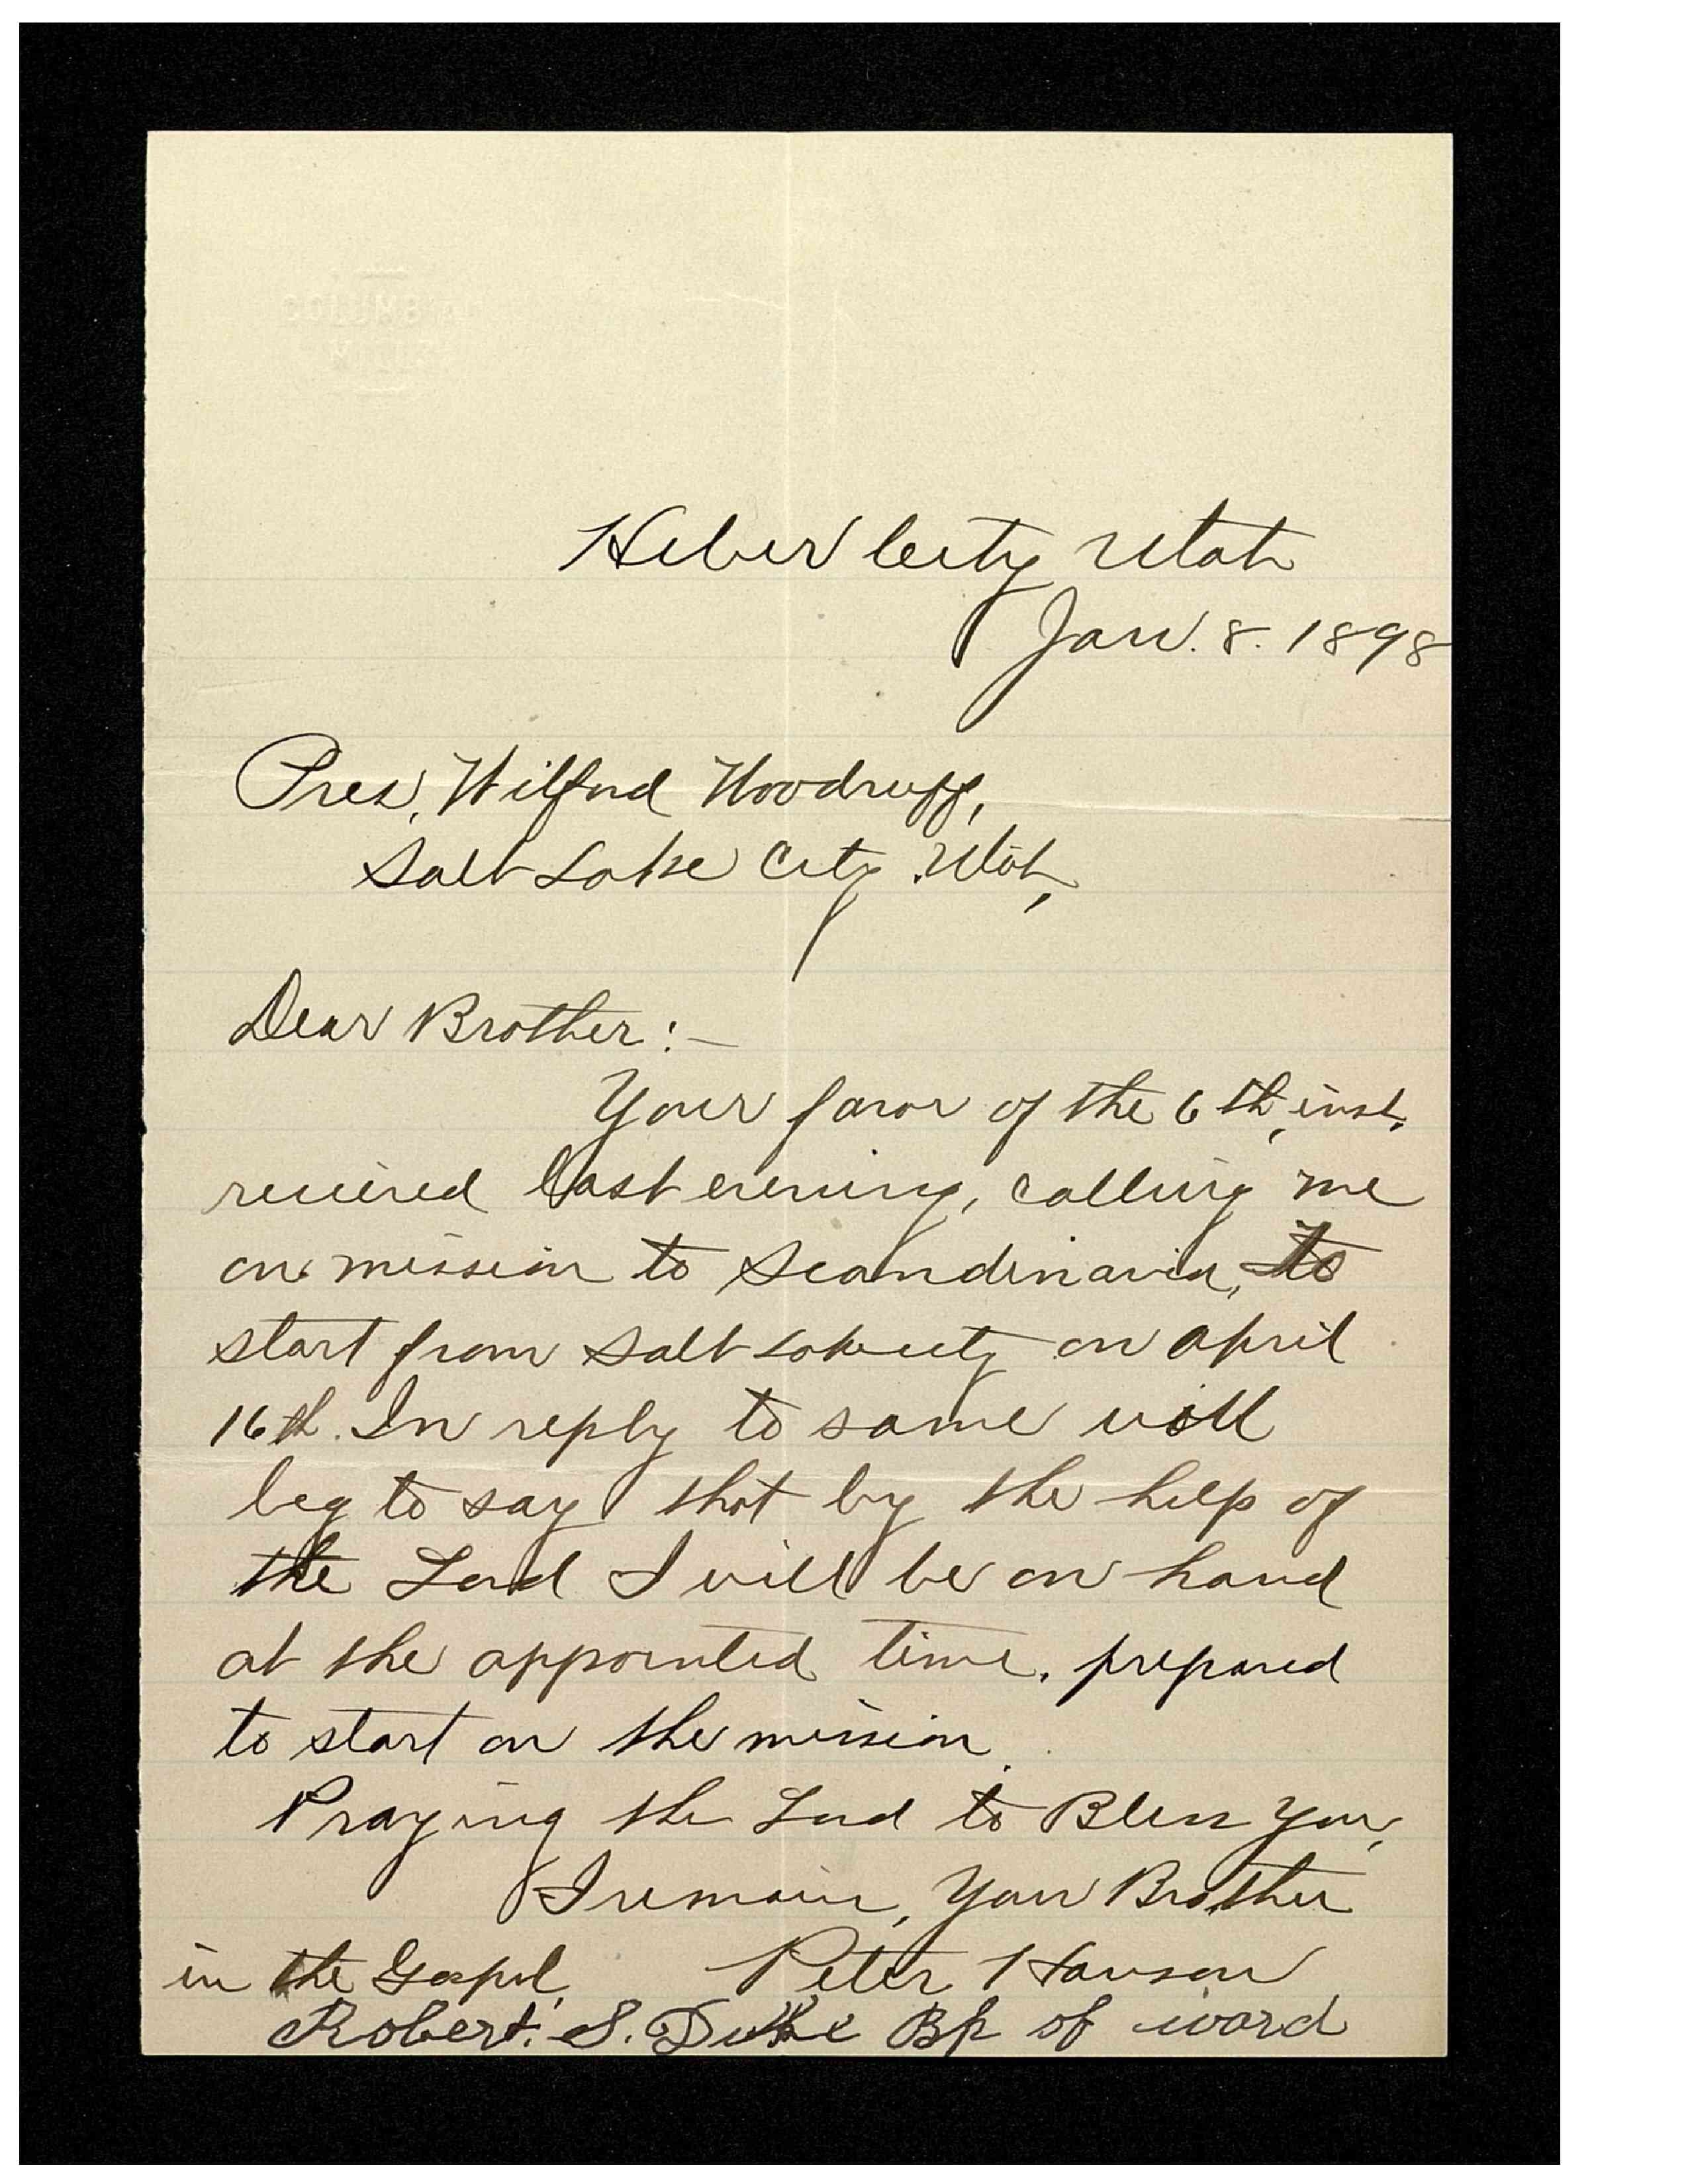 COLUMBIA
MILLS
Heber City Utah
Jan. 8. 1898
Pres. Wilford Woodruff,
Salt Lake City. Utah,
Dear Brother:-
Your favor of the 6th, inst.
received last evening, calling me
on mission to Scandinavia, to
start from Salt Lake City on April
16th. In reply to same will
beg to say that by the help of
the Lord I will be on hand
at the appointed time, prepared
to start on the mission.
Praying the Lord to Bless You,
I remain, Your Brother
in the Gospel, Peter Hanson
Robert. S. Duke Bp of ward